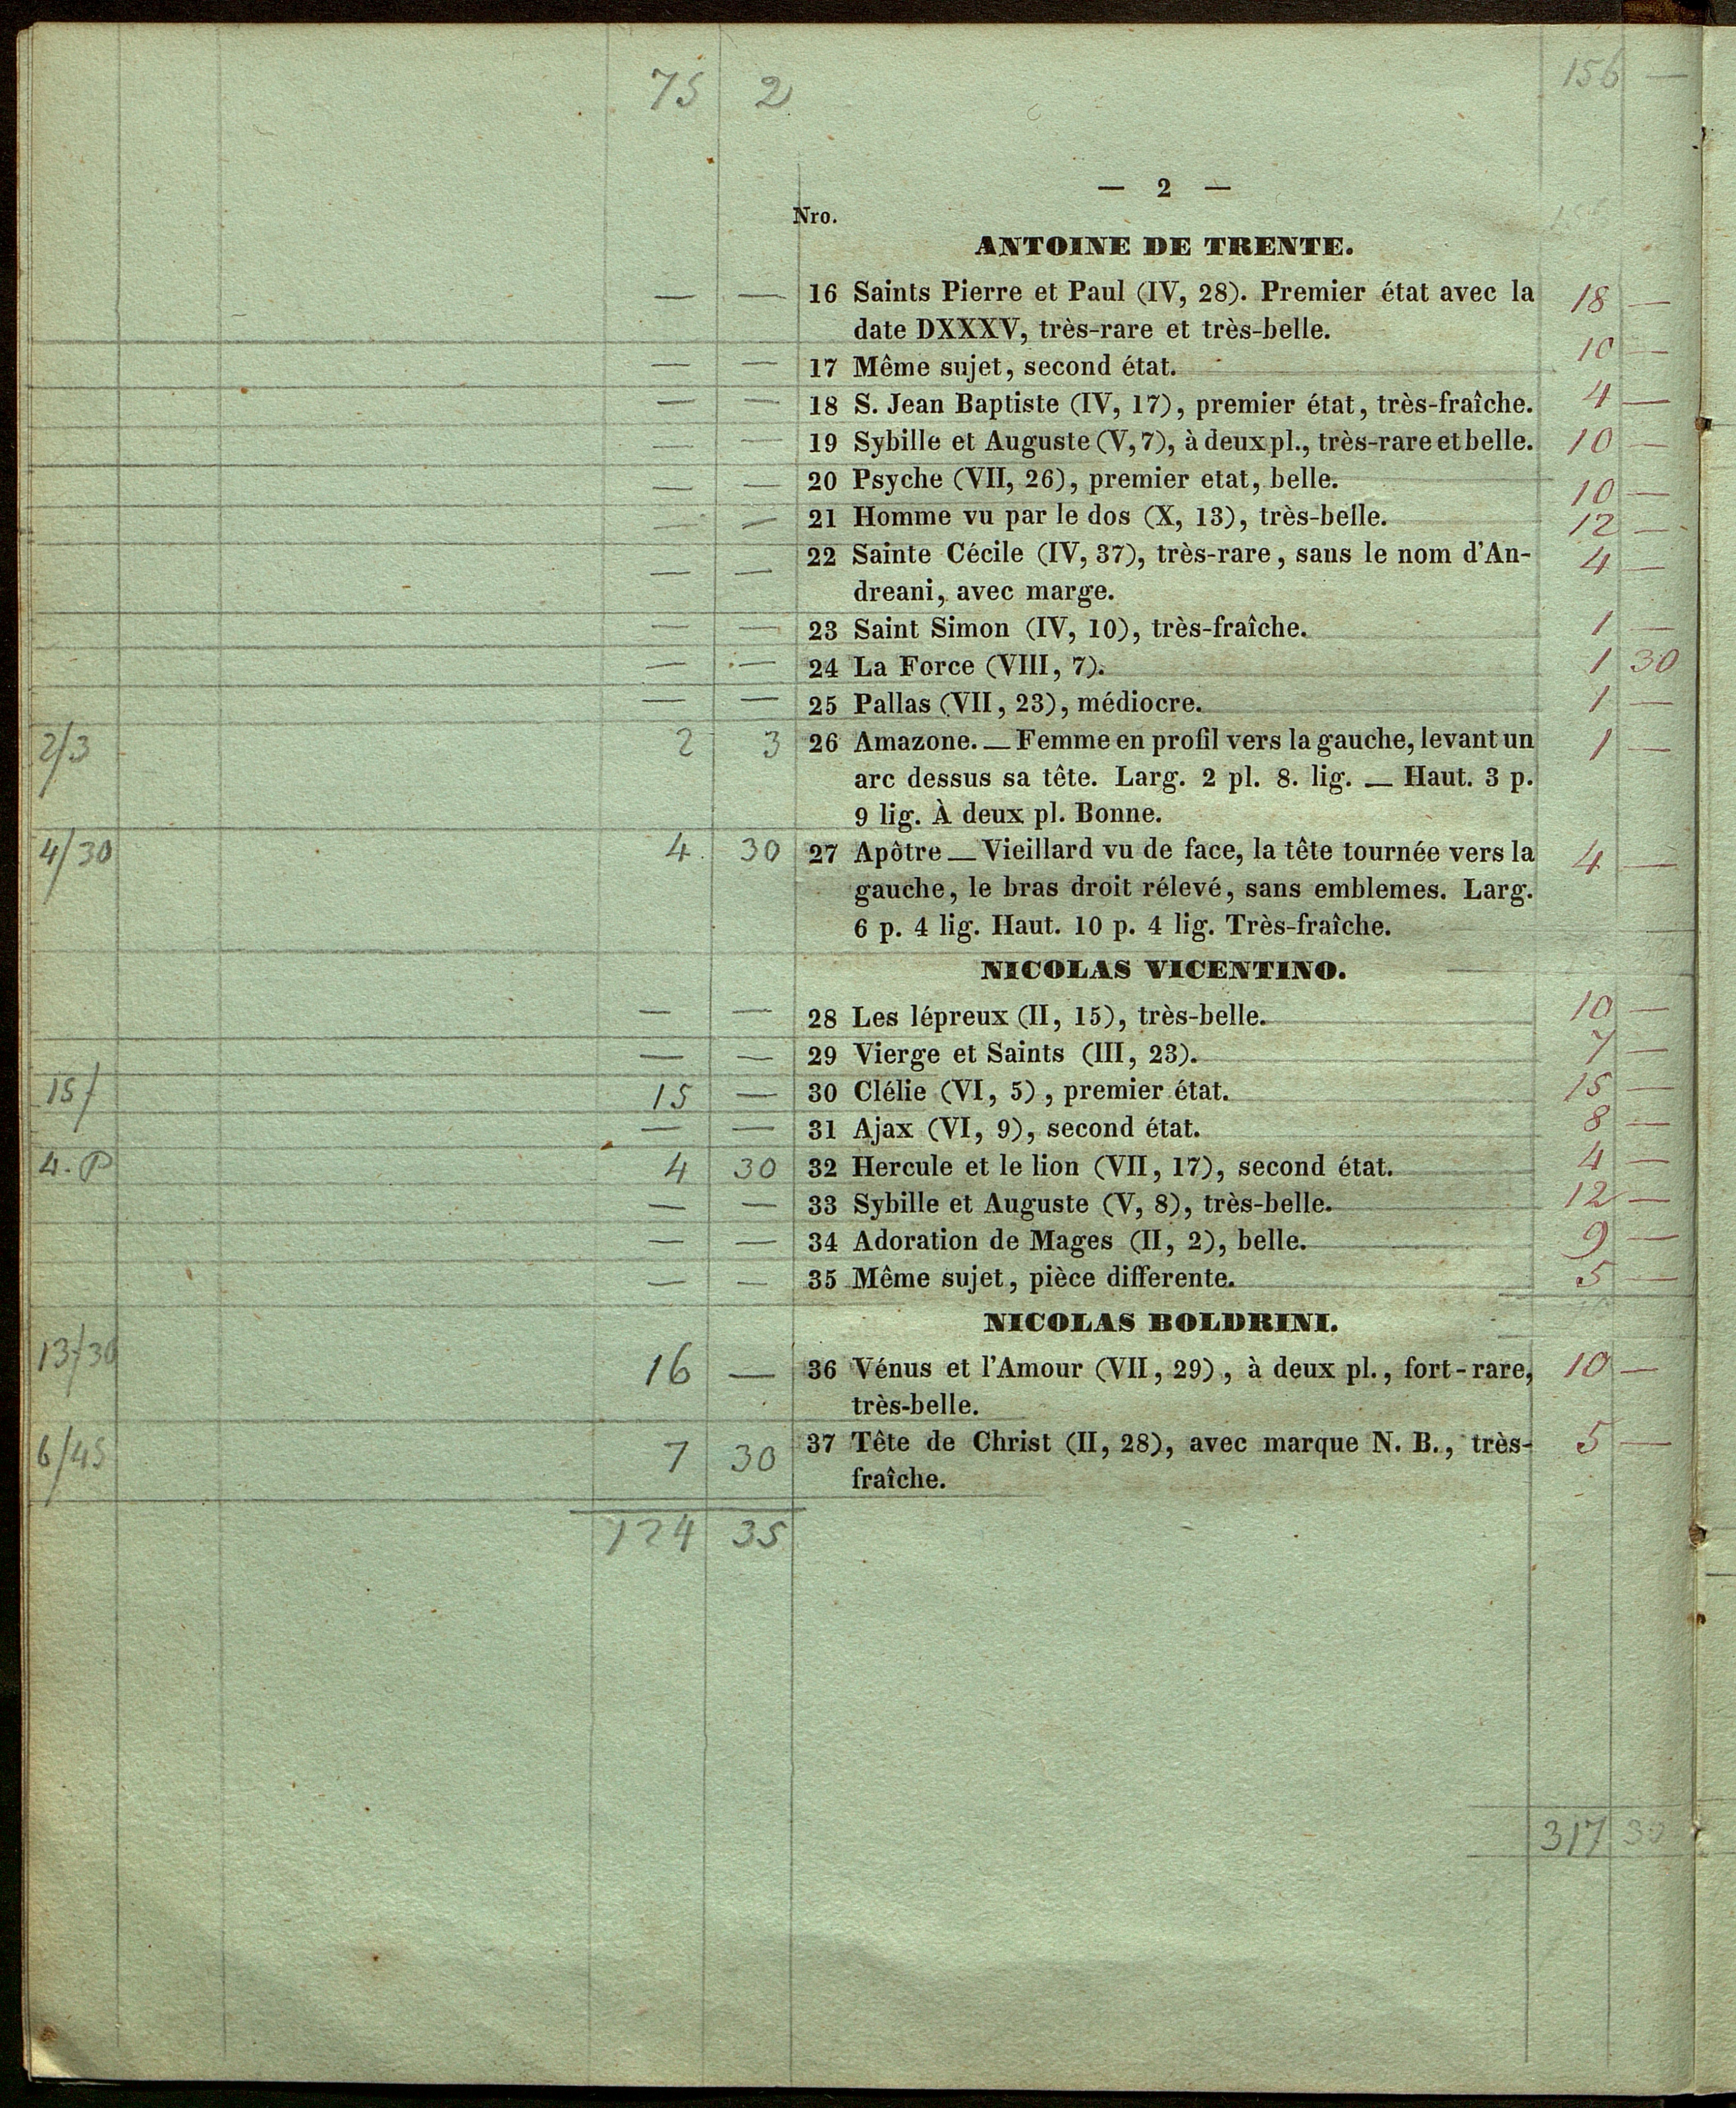 75 2 156 —
— 2 —
Nro.
ANTOINE DE TRENTE.
— — 16 Saints Pierre et Paul (IV, 28). Premier état avec la 18 —
date DXXXV, très-rare et très-belle.
— — 17 Même sujet, second état. 10 —
— — 18 S. Jean Baptiste (IV, 17), premier état, très-fraîche. 4 —
— — 19 Sybille et Auguste (V, 7), à deux pl., très-rare et belle. 10 —
— — 20 Psyche (VII, 26), premier etat, belle. 10 —
— — 21 Homme vu par le dos (X, 13), très-belle. 12 —
— — 22 Sainte Cécile (IV, 37), très-rare, sans le nom d'An- 4 —
dreani, avec marge.
— — 23 Saint Simon (IV, 10), très-fraîche. 1 —
— — 24 La Force (VIII, 7). 1 30
— — 25 Pallas (VII, 23), médiocre. 1 —
2/3 2 3 26 Amazone. — Femme en profil vers la gauche, levant un 1 —
arc dessus sa tête. Larg. 2 pl. 8. lig. — Haut. 3 p.
9 lig. À deux pl. Bonne.
4/30 4 30 27 Apôtre — Vieillard vu de face, la tête tournée vers la 4 —
gauche, le bras droit rélevé, sans emblemes. Larg.
6 p. 4 lig. Haut. 10 p. 4 lig. Très-fraîche.
NICOLAS VICENTINO.
— — 28 Les lépreux (II, 15), très-belle. 10 —
— — 29 Vierge et Saints (III, 23). 7 —
15/ 15 — 30 Clélie (VI, 5), premier état. 15 —
— — 31 Ajax (VI, 9), second état. 8 —
4. P 4 30 32 Hercule et le lion (VII, 17), second état. 4 —
— — 33 Sybille et Auguste (V, 8), très-belle. 12 —
— — 34 Adoration de Mages (II, 2), belle. 9 —
— — 35 Même sujet, pièce differente. 5 —
NICOLAS BOLDRINI.
13/30 16 — 36 Vénus et l'Amour (VII, 29), à deux pl., fort-rare, 10 —
très-belle.
6/45 7 30 37 Tête de Christ (II, 28), avec marque N. B., très- 5 —
fraîche.
124 35
317 30